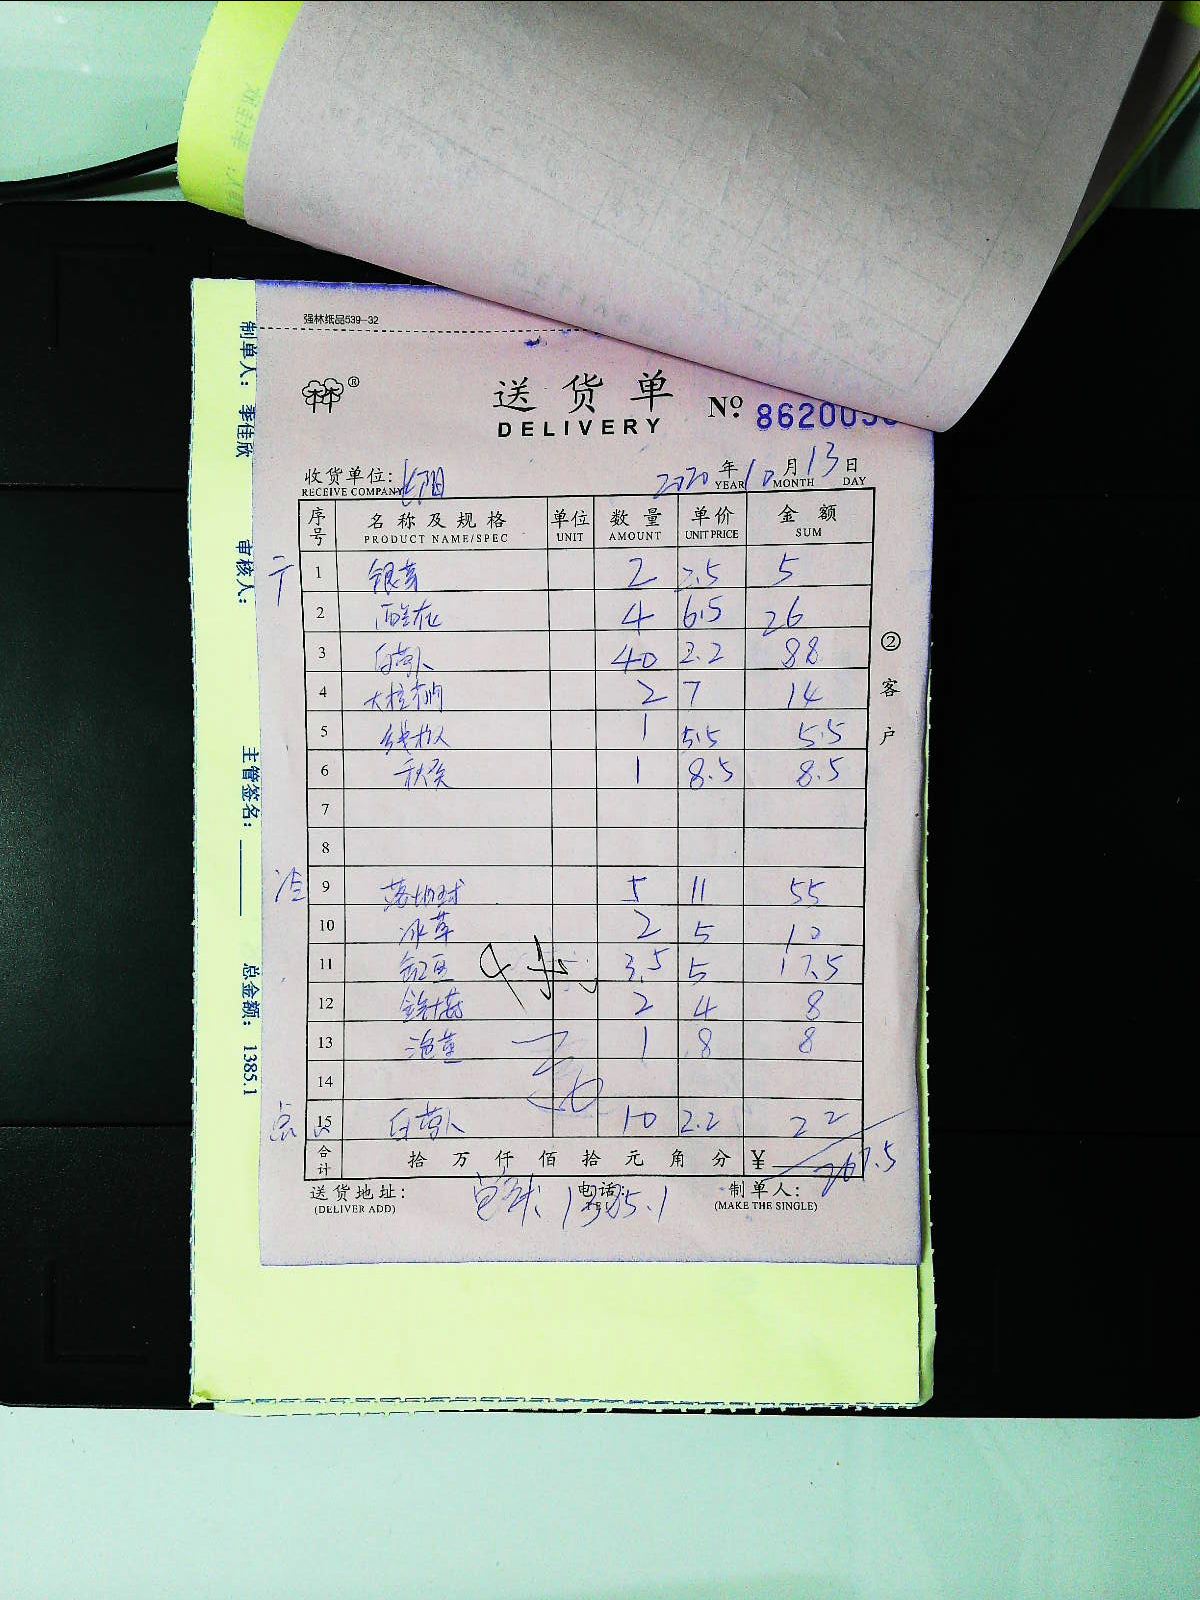 强林纸品539-32
送货单
DELIVERY
№ 862003
收货单位:
RECEIVE COMPANY
2020年10月13日
YEAR MONTH DAY
序号 名称及规格 单位 数量 单价 金额
PRODUCT NAME/SPEC UNIT AMOUNT UNIT PRICE SUM
1 2 2.5 5
2 4 6.5 26
3 白萝卜 40 2.2 88
4 2 7 14
5 线椒 1 5.5 5.5
6 秋葵 1 8.5 8.5
7
8
9 5 11 55
10 冰草 2 5 10
11 豇豆 3.5 5 17.5
12 2 4 8
13 1 8 8
14
15 白萝卜 10 2.2 22
合计 拾 万 仟 佰 拾 元 角 分 ¥ 267.5
送货地址: 电话: 制单人:
(DELIVER ADD) TEL (MAKE THE SINGLE)
1385.1
②客户
制单人: 李佳欣
审核人:
主管签名:
总金额: 1385.1